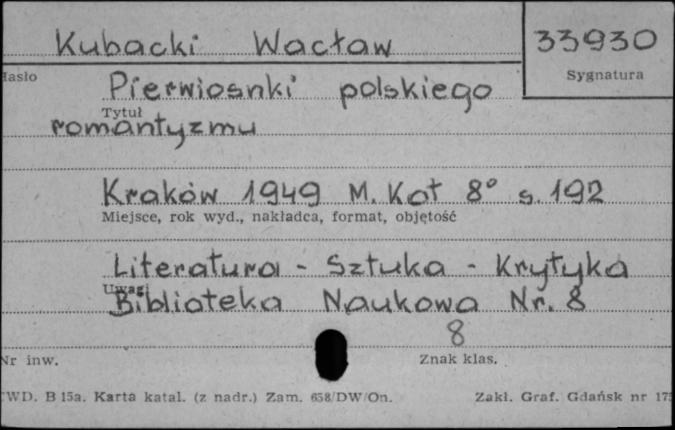 Kubacki Wacław 33930
Hasło Sygnatura
Pierwiosnki polskiego
Tytuł
romantyzmu
Kraków 1949 M. Kot 8° s. 192
Miejsce, rok wyd., nakładca, format, objętość
Literatura - Sztuka - Krytyka
Uwagi
Biblioteka Naukowa Nr. 8
8
Nr inw. Znak klas.
WD. B 15a. Karta katal. (z nadr.) Zam. 658/DW/On. Zakł. Graf. Gdańsk nr 175